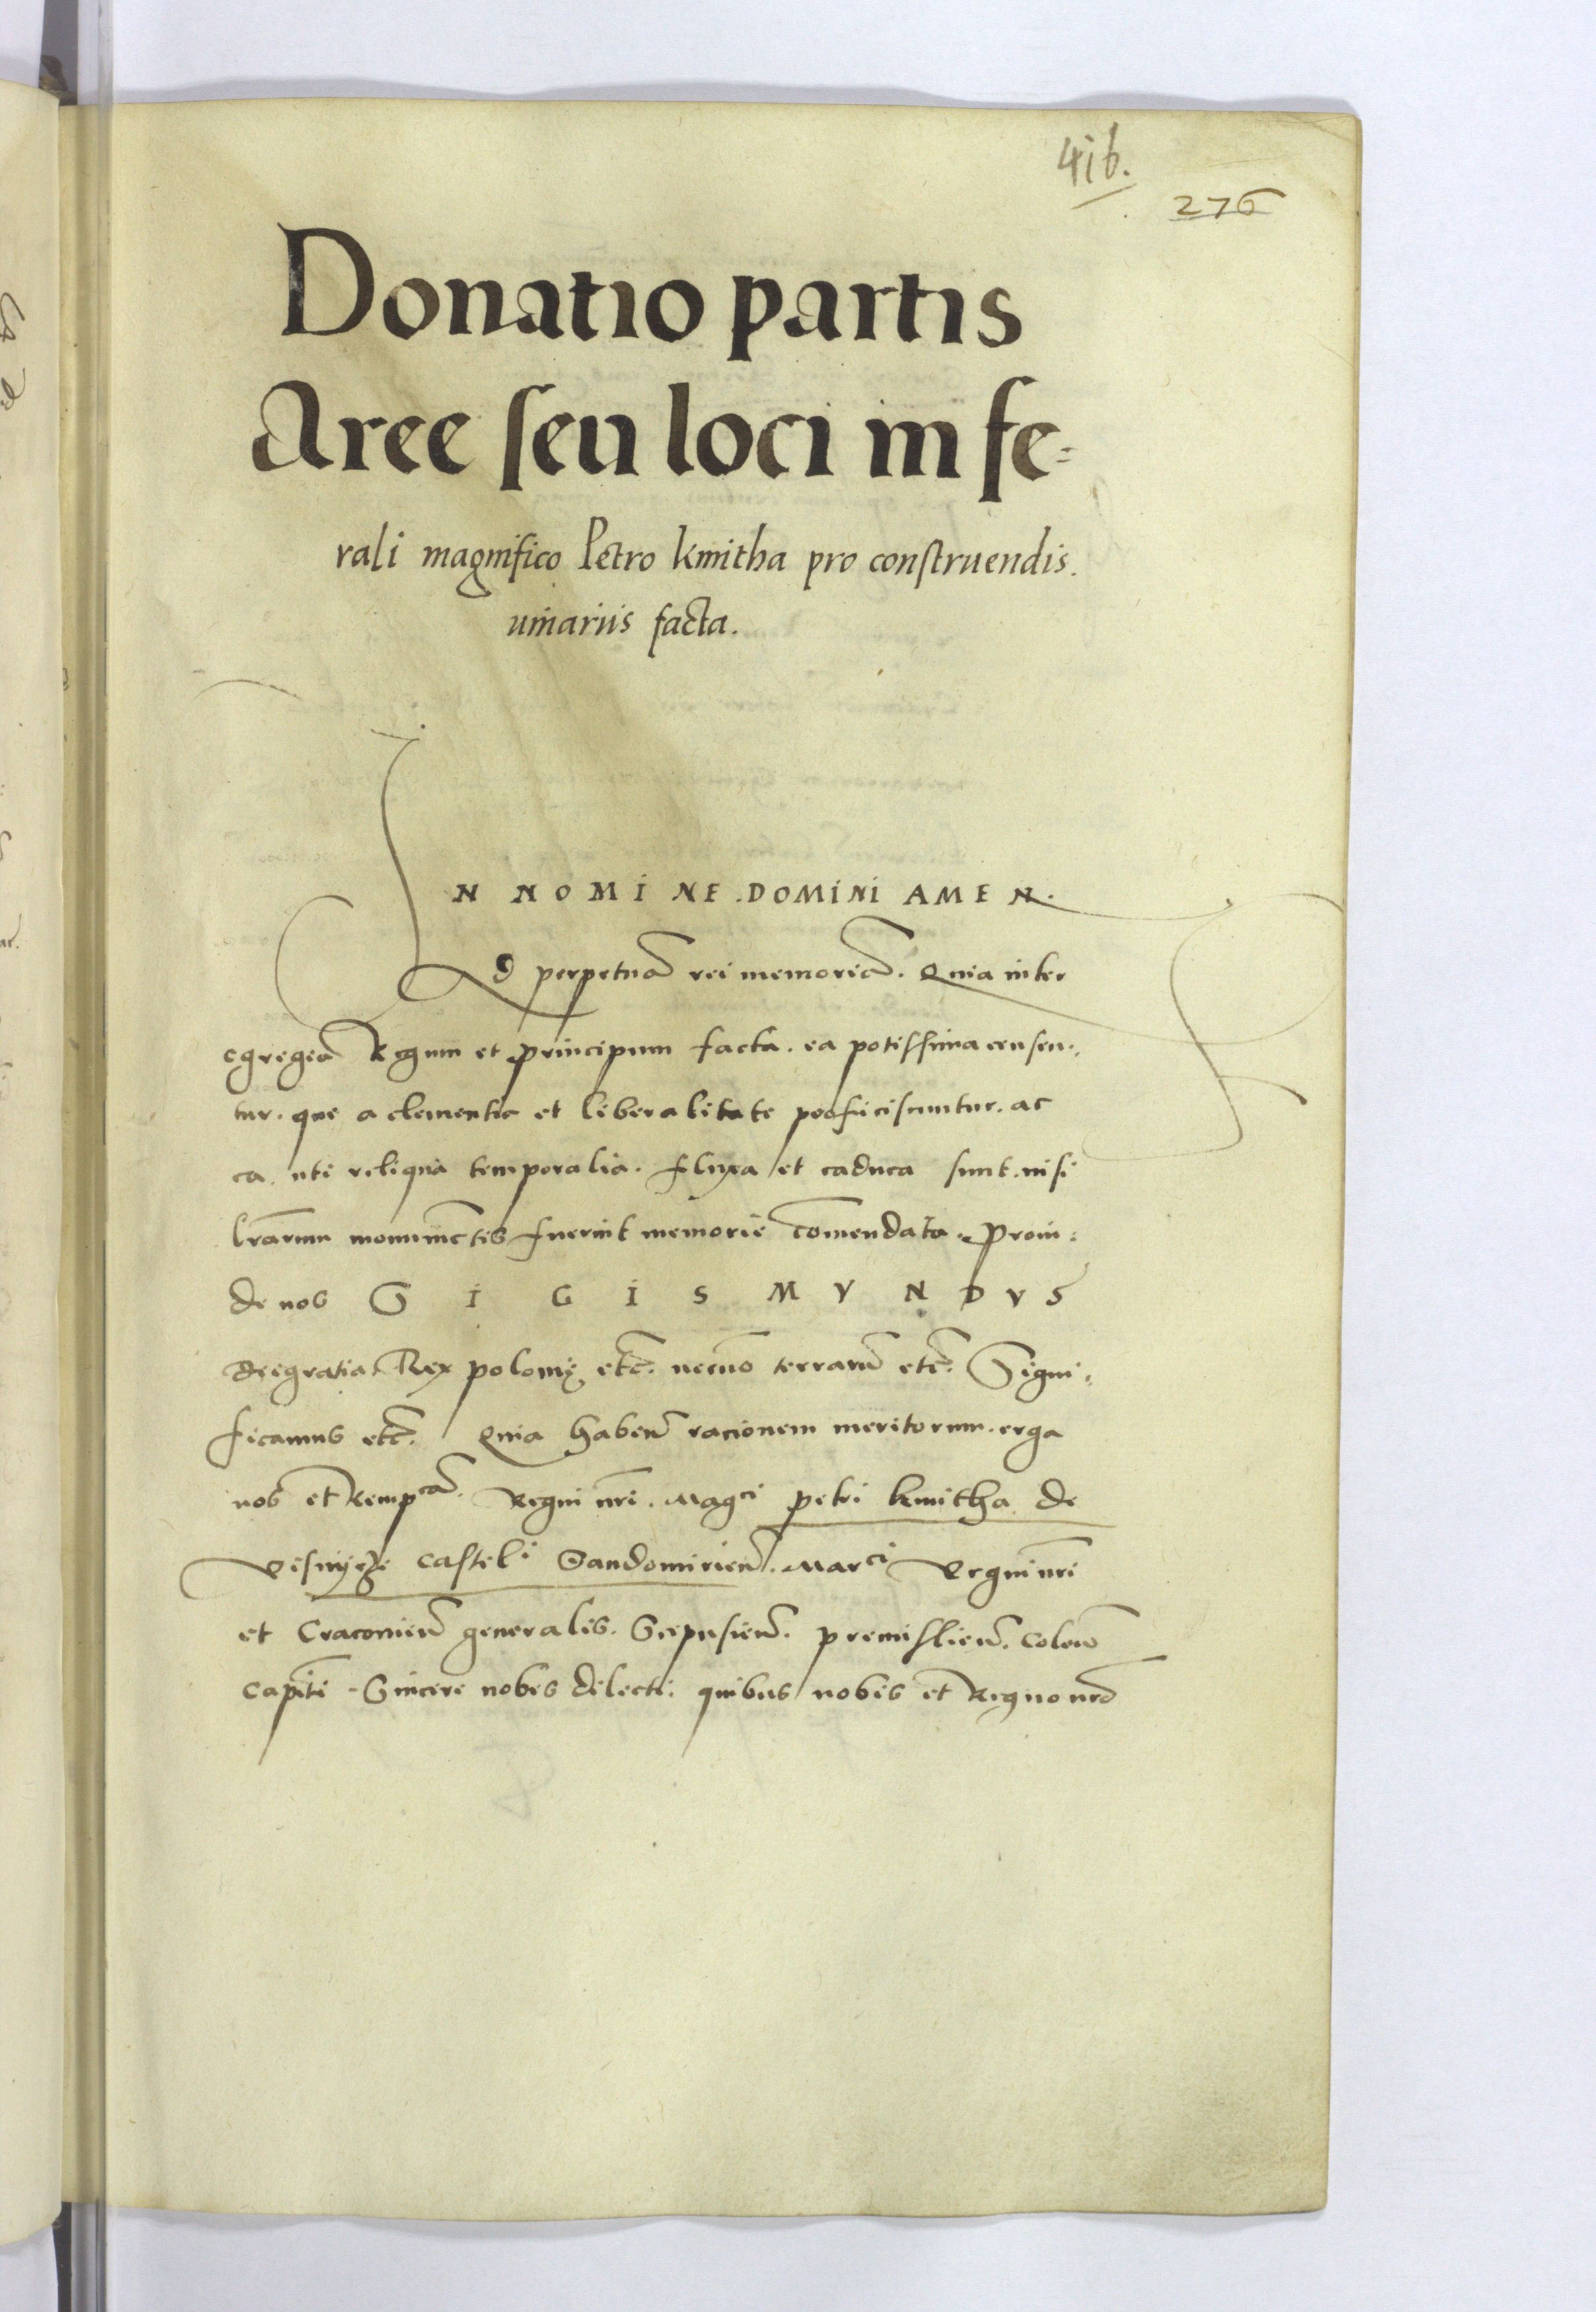 416.
276
Donatio partis
Aree seu loci in fe=
rali magnifico Petro kmitha pro construendis.
uinariis facta.
IN NOMINE DOMINI AMEN.
Ad perpetuā rei memoriā. Quia inter
egregia Regum et principum facta. ea potissima censen=
tur. que a clementia et liberalitate proficiscuntur. ac
ea uti reliqua temporalia. fluxa et caduca sunt. nisi
lrārum monumētis fuerint memorie cōmendata. Proin=
de nos SIGISMVNDVS
deigratia Rex polonię etc̄. necnō terrarū etc̄. Signi=
ficamus etc̄. Quia habeñ racionem meritorum. erga
nos et Rempcā. Regni nri. Magci petri kmitha de
Visnycze Casteli Sandomirieñ. Marci Regni nri
et Cracovieñ generalis. Scepusieñ. premislieñ. Coleñ
capiti. Sincere nobis dilecti. quibus nobis et Regno nrō